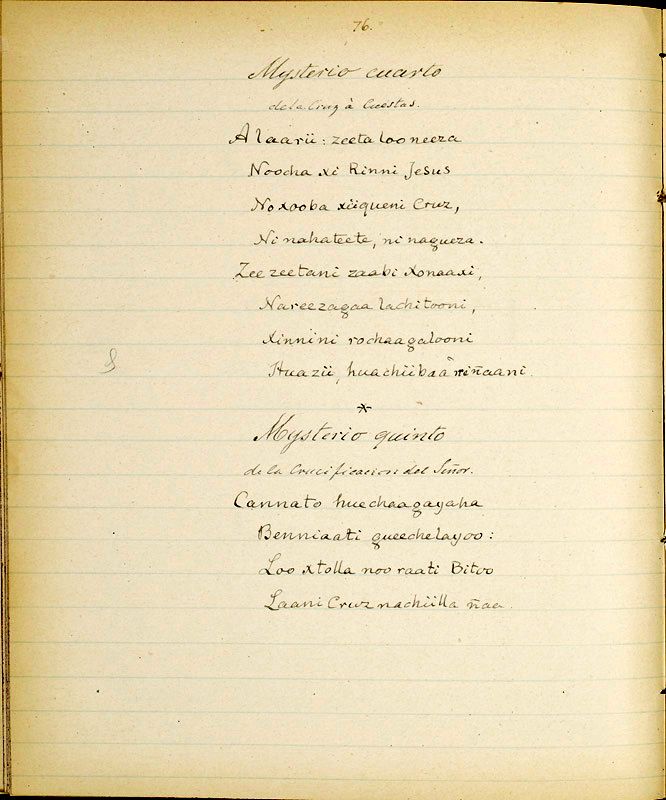 76.
Mysterio cuarto
de la Cruz à Cuestas.
Alaarii: zeeta loo neeza
Noocha xi Rinni Jesus
Noxooba xiiqueni Cruz,
Ni nahateete, ni nagueza.
Zee zeetani zaabi Xonaaxi,
Nareezagaa lachitooni,
Xinnini rochaagalooni
Huazii, huachiibaa riñaani.
*
Mysterio quinto
de la Crucificacion del Señor.
Cannato huechaagayaha
Benniaati gueechelayoo:
Loo xtolla noo raati Bitoo
Laani Cruz nachiilla ñaa.